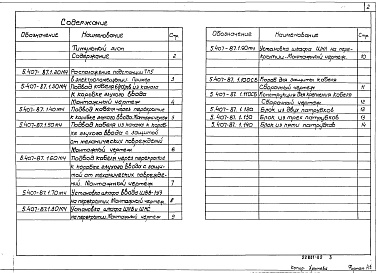 2
Содержание
Обозначение Наименование Стр.
Титульный лист
Содержание 2
5.407-87.1.20МЧ Расположение подстанции ТП5
в электропомещении. Пример 3
5.407-87.1.30МЧ Подвод кабеля из канала
к коробке глухого ввода
Монтажный чертеж 4
5.407-87.1.40МЧ Подвод кабеля через перекрытие
к коробке глухого ввода. Монтажный чертеж 5
5.407-87.1.50МЧ Подвод кабелей из канала к короб-
ке глухого ввода с защитой
от механических повреждений
Монтажный чертеж 6
5.407-87.1.60МЧ Подвод кабеля через перекрытие
к коробке глухого ввода с защи-
той от механических поврежде-
ний. Монтажный чертеж 7
5.407-87.1.70МЧ Установка шкафа ввода ШВВ-
на перекрытии. Монтажный чертеж 8
5.407-87.1.80МЧ Установка шкафа
на перекрытии. Монтажный чертеж 9
Обозначение Наименование Стр.
5.407-87.1.90МЧ Установка шкафа ШНЛ на пере-
крытии. Монтажный чертеж 10
5.407-87.1.100СБ Короб для защиты кабеля
Сборочный чертеж 11
5.407-87.1.110СБ Конструкция для крепления кабеля
Сборочный чертеж 12
5.407-87.1.120 Блок из двух патрубков 13
5.407-87.1.130 Блок из трех патрубков 14
5.407-87.1.140 Блок из пяти патрубков 14
Копир.
Формат А3